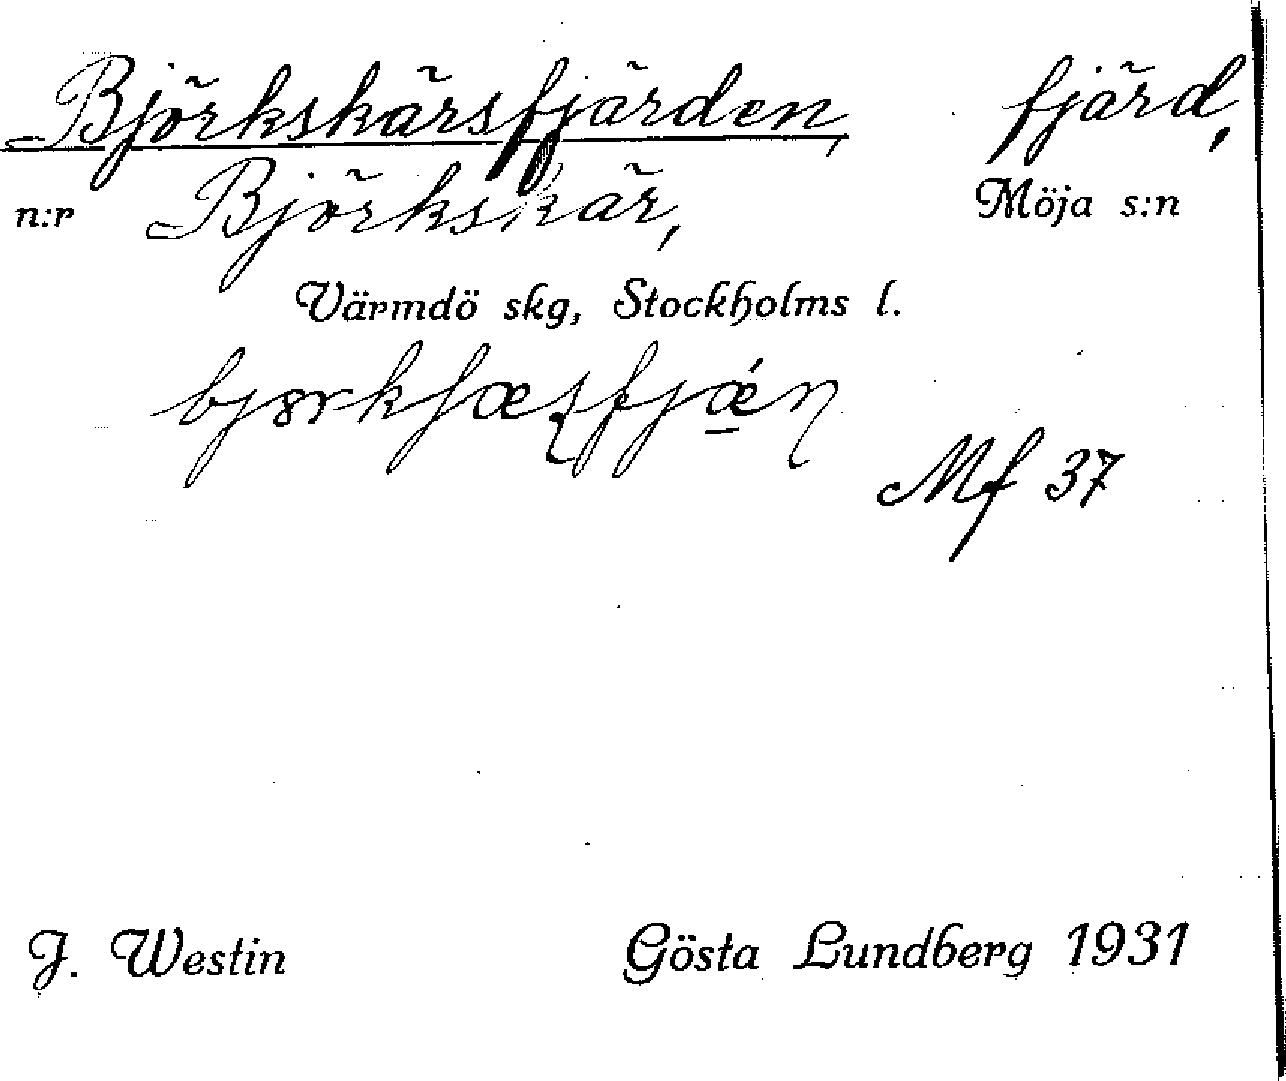 Björkskärsfjärden, fjärd,
n:r Björkskär, Möja s:n
Värmdö skg, Stockholms l.
Mf 37
J. Westin Gösta Lundberg 1931